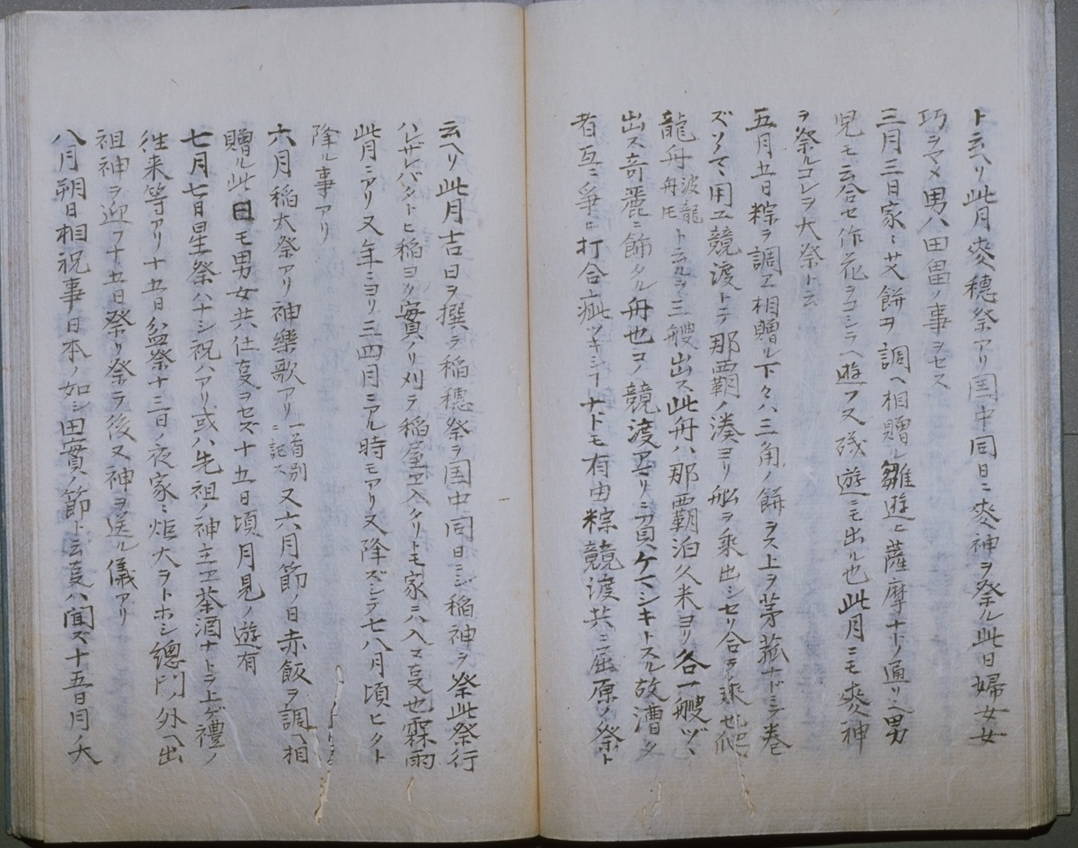 ト云ヘリ此月麥穂祭アリ国中同日ニ麥神ヲ祭ル此日婦女女
巧ヲヤメ男ハ田畠ノ事ヲセス
三月三日家〻艾餅ヲ調ヘ相贈ル雛遊ヒ薩摩ナトノ通リ也男
児モ云合セ作花ヲコシラヘ遊フ又 遊ニモ出ル也此月ニモ麥神
ヲ祭ルコレヲ大祭ト云
五月五日粽ヲ調エ相贈ル下々ハ三角ノ餅ヲス上ヲ茅菰ナドニテ巻
ズソマテ用エ競渡トテ那覇ノ湊ヨリ船ヲ乗出シセリ合ヲ乗也
龍舟波龍舟トモト云ヲ三艘出ス此舟ハ那覇泊久米ヨリ各一艘ヅヽ
出ス奇麗ニ飾タル舟也ヨノ競渡アマリニ ケマシキトスル故漕タ
者互ニ爭ヒ打合疵ツキシ ナトモ有由粽競渡共ニ屈原ノ祭ト
云ヘリ此月吉日ヲ撰テ稲穂祭ヲ国中同日ニシ稲神ヲ祭此祭行
ハザレバタトヒ稲ヨク實ノリ刈テ稲 エ入タリトモ家ニハ入マ支也霖雨
此月ニアリ又年ニヨリ三四月ニアル時モアリ又降ズシテ七八月頃ヒタト
降ル事アリ
六月稲大祭アリ神樂歌アリ一首別ニ記ス又六月節ノ日赤飯ヲ調ヘ相
贈ル此日モ男女共仕支ヲセズ十五日頃月見ノ遊有
七月七日星祭ハナシ祝ハアリ或ハ先祖ノ神主エ茶酒ナトヲ上ゲ禮ノ
徃来等アリ十五日盆祭十三日ノ夜家〻炬火ヲトホシ總門ノ外ヘ出
祖神ヲ迎フ十五日祭リ祭ラ後又神ヲ送ル儀アリ
八月朔日相祝事日本ノ如シ田實ノ節ト云支ハ聞ズ十五日月ノ大